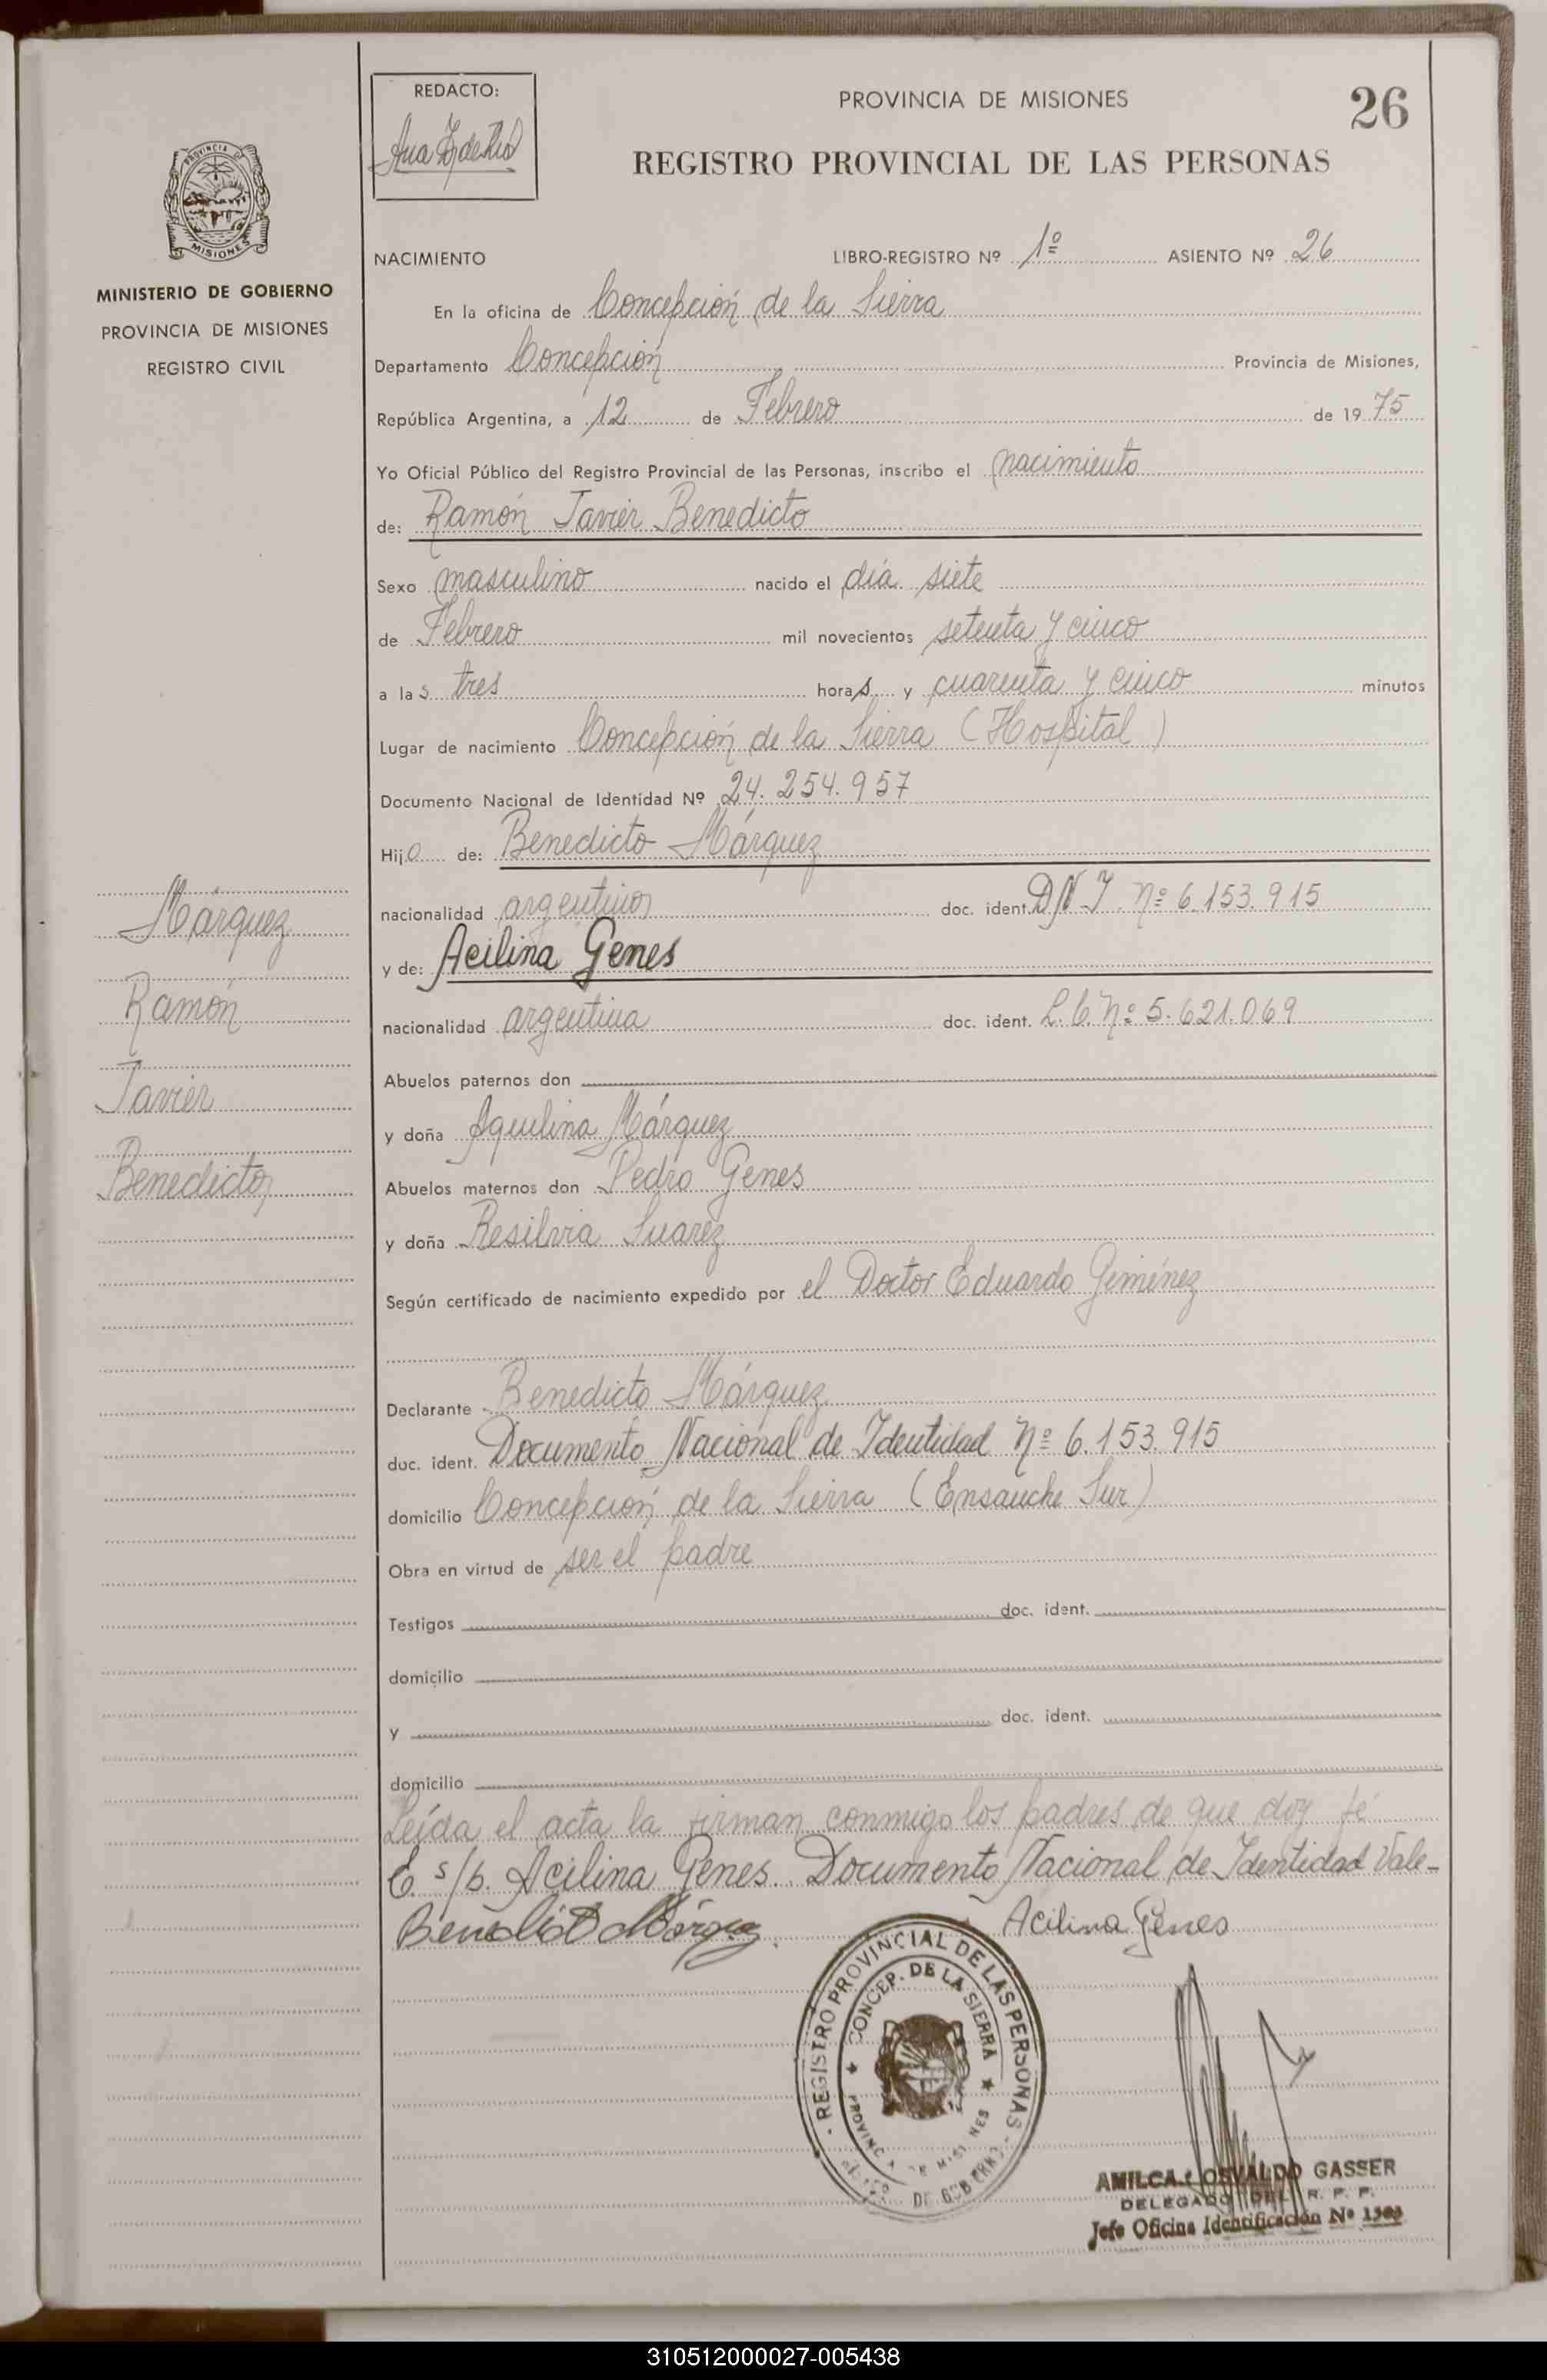 REDACTO:
PROVINCIA DE MISIONES
26
REGISTRO PROVINCIAL DE LAS PERSONAS
PROVINCIA DE
MISIONES
MINISTERIO DE GOBIERNO
PROVINCIA DE MISIONES
REGISTRO CIVIL
NACIMIENTO LIBRO-REGISTRO Nº 1º ASIENTO Nº 26
En la oficina de Concepción de la Sierra
Departamento Concepción Provincia de Misiones,
República Argentina, a 12 de Febrero de 1975
Yo Oficial Público del Registro Provincial de las Personas, inscribo el nacimiento
de: Ramón Javier Benedicto
Sexo masculino nacido el día siete
de Febrero mil novecientos setenta y cinco
a las tres horas y cuarenta y cinco minutos
Lugar de nacimiento Concepción de la Sierra (Hospital)
Documento Nacional de Identidad Nº 24.254.957
Hijo de: Benedicto Márquez
nacionalidad argentino doc. ident. D N I. Nº 6.153.915
y de: Acilina Genes
nacionalidad argentina doc. ident. L.C. Nº 5.621.069
Abuelos paternos don
y doña Aquilina Márquez
Abuelos maternos don Pedro Genes
y doña Resilvia Suarez
Según certificado de nacimiento expedido por el Doctor Eduardo Giménez
Declarante Benedicto Márquez
doc. ident. Documento Nacional de Identidad Nº 6.153.915
domicilio Concepción de la Sierra (Ensanche Sur)
Obra en virtud de ser el padre
Testigos doc. ident.
domicilio
y doc. ident.
domicilio
Leída el acta la firman conmigo los padres de que doy fé
E. s/b. Acilina Genes. Documento Nacional de Identidad Vale-
Benedicto Márquez Acilina Genes
Márquez
Ramón
Javier
Benedicto
REGISTRO PROVINCIAL DE LAS PERSONAS
CONCEP. DE LA SIERRA
PROVINCIA DE MISIONES
DE GOBIERNO
AMILCAR OSVALDO GASSER
DELEGADO DEL R. P. P.
Jefe Oficina Identificación Nº
310512000027-005438